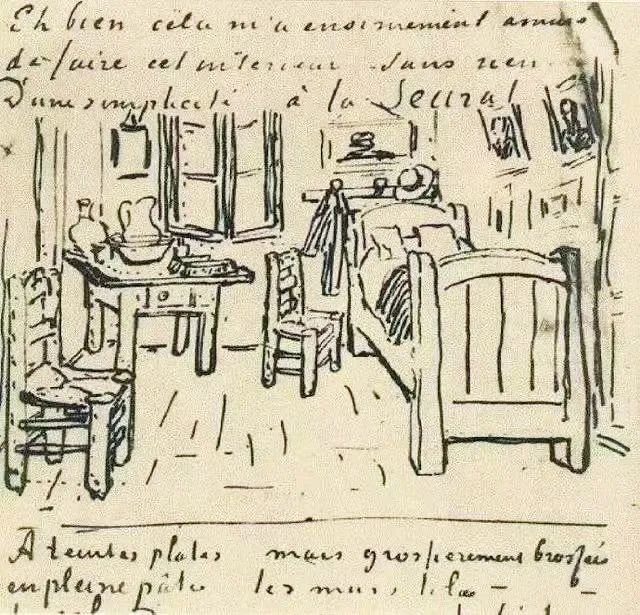 Eh bien cela m'a enormement amusé
de faire cet interieur sans rien
D'une simplicité à la Seurat
A teintes plates mais grossierement brossées
en pleine pâte les murs lilas